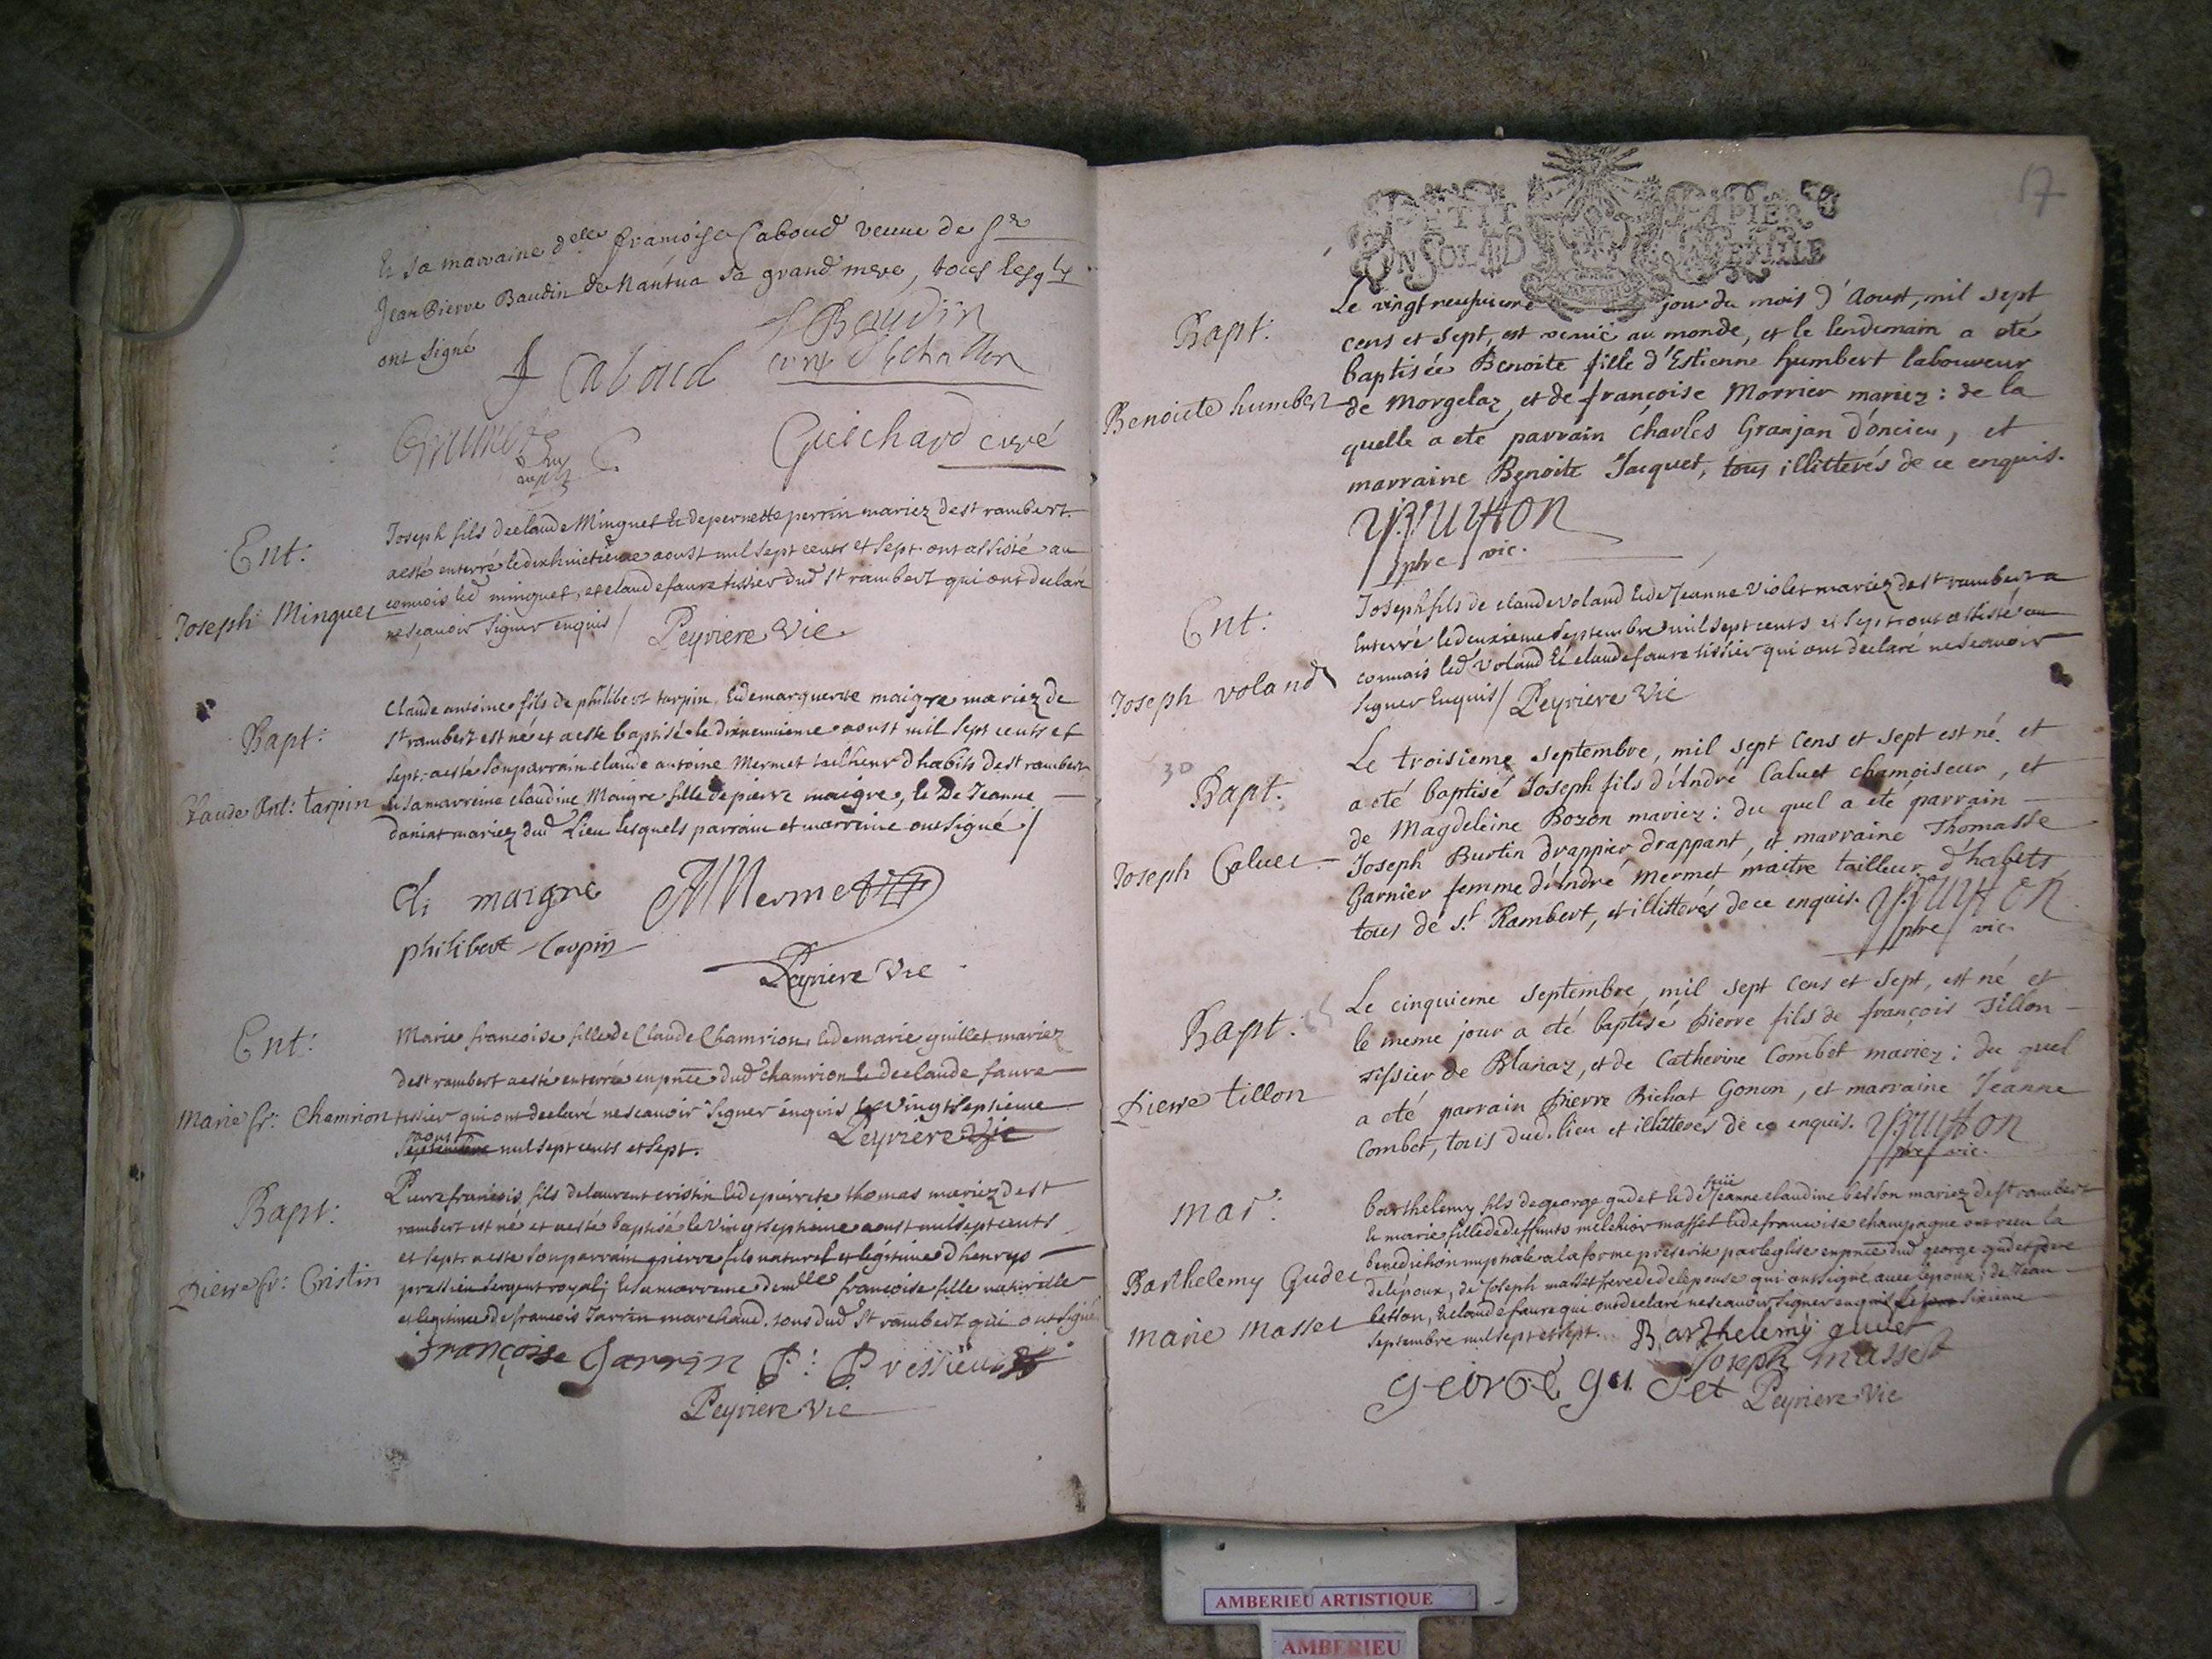 Et sa marraine d^elle françoise Caboud veuve de S^r
Jean Pierre Baudin de Nantua sa grand mere, tous lesq^ls
ont signé
J Baudin
f Caboud
curé
Guichard curé
Ent:
Joseph Minguet
Joseph fils de claude Minguet & de pernette perrin mariez de st rambert
a esté enterré le dixhuictieme aoust mil sept cents et sept. ont assisté au
convois led minguet, et claude faure tissier dud st rambert qui ont declaré
ne sçavoir signer enquis / Peyriere Vic
Bapt:
Claude Ant: tarpin
Claude antoine fils de philibert tarpin, & de marguerite maigre mariez de
st rambert est né et a esté baptisé le dixneuvieme aoust mil sept cents et
sept. a esté son parrain claude antoine Mermet tailheur dhabits de st rambert
& sa marreine claudine Maigre fille de pierre maigre, & De Jeanne
mariez dud Lieu lesquels parrain et marreine ont signé /
cl; maigre
AMermet
philibert tarpin
Peyriere Vic
Ent:
Marie fr: Chamrion
Marie françoise fille de Claude Chamrion & de marie guillet mariez
de st rambert a esté enterrée en pnce dud chamrion & de claude faure
tissier qui ont declaré ne scavoir signer enquis le vingtseptieme
aoust
septembre mil sept cents et sept.
Peyriere Vic
Bapt:
Pierre fr: Cristin
Pierre francois fils de laurent cristin & de pierrete thomas mariez de st
rambert est né et a esté baptisé le vingtseptieme aoust mil sept cents
et sept. a esté son parrain pierre fils naturel et legitime d henry
pressieu sergent royal; & sa marreine dem^lle françoise fille naturelle
et legitime de francois Jarrin marchand. tous dud st rambert qui ont signé
françoise Jarrin P: Pressieu
Peyriere Vic
17
PETIT PAPIER
UN SOL LA FEUILLE
Bapt:
Benoicte humbert
Le vingt neufvieme jour du mois d'Aoust, mil sept
cens et sept, est venüe au monde, et le lendemain a eté
baptisée Benoite fille d'Estienne humbert laboureur
de Morgelaz, et de françoise Morrier mariez: de la
quelle a eté parrain Charles Granjan d'oncieu, et
marraine Benoite Jacquet, tous illitterés de ce enquis.
ptre vic.
Ent:
Joseph voland
Joseph fils de claude Voland & de Jeanne Violet mariez de st rambert a
Enterré le deuxieme septembre mil sept cents et sept. ont assisté au
convais led Voland & claude faure tissier qui ont declaré ne scavoir
signer Enquis / Peyriere Vic
30
Bapt:
Joseph Caluet
Le troisieme septembre, mil sept Cens et sept est né et
a eté baptisé Joseph fils d'André Caluet chamoiseur, et
de Magdeleine Bozon mariez: du quel a eté parrain
Joseph Burtin drappier drappant, et marraine Thomasse
Garnier femme d'André Mermet maitre tailleur d'habits
tous de s^t Rambert, et illitterés de ce enquis.
ptre vic.
Bapt:
Pierre tillon
Le cinquieme septembre mil sept Cens et sept, est né et
le meme jour a eté baptisé Pierre fils de françois Tillon
Tissier de Blanaz, et de Catherine Combet mariez; du quel
a eté parrain Pierre Bichat Gonon, et marraine Jeanne
Combet, tous dud. lieu et illitterés de ce enquis.
ptre vic.
Mar:
Barthelemy Gudet
Marie Masset
barthelemy fils de george gudet & de Jeanne claudine besson mariez de st rambert
& marie fille de deffunts melchior masset & de francoise champagne ont receu la
benediction nuptiale a la forme prescrite par leglise en pnce dud george gudet pere
de lépoux, de Joseph masset frere de de lepouse qui ont signé avec lépoux; de Jean
besson, & claude faure qui ont declaré ne scavoir signer enquis sixieme
septembre mil sept et sept. Barthelemy gudet
Joseph masset
george gudet
Peyriere Vic
AMBERIEU ARTISTIQUE
AMBERIEU